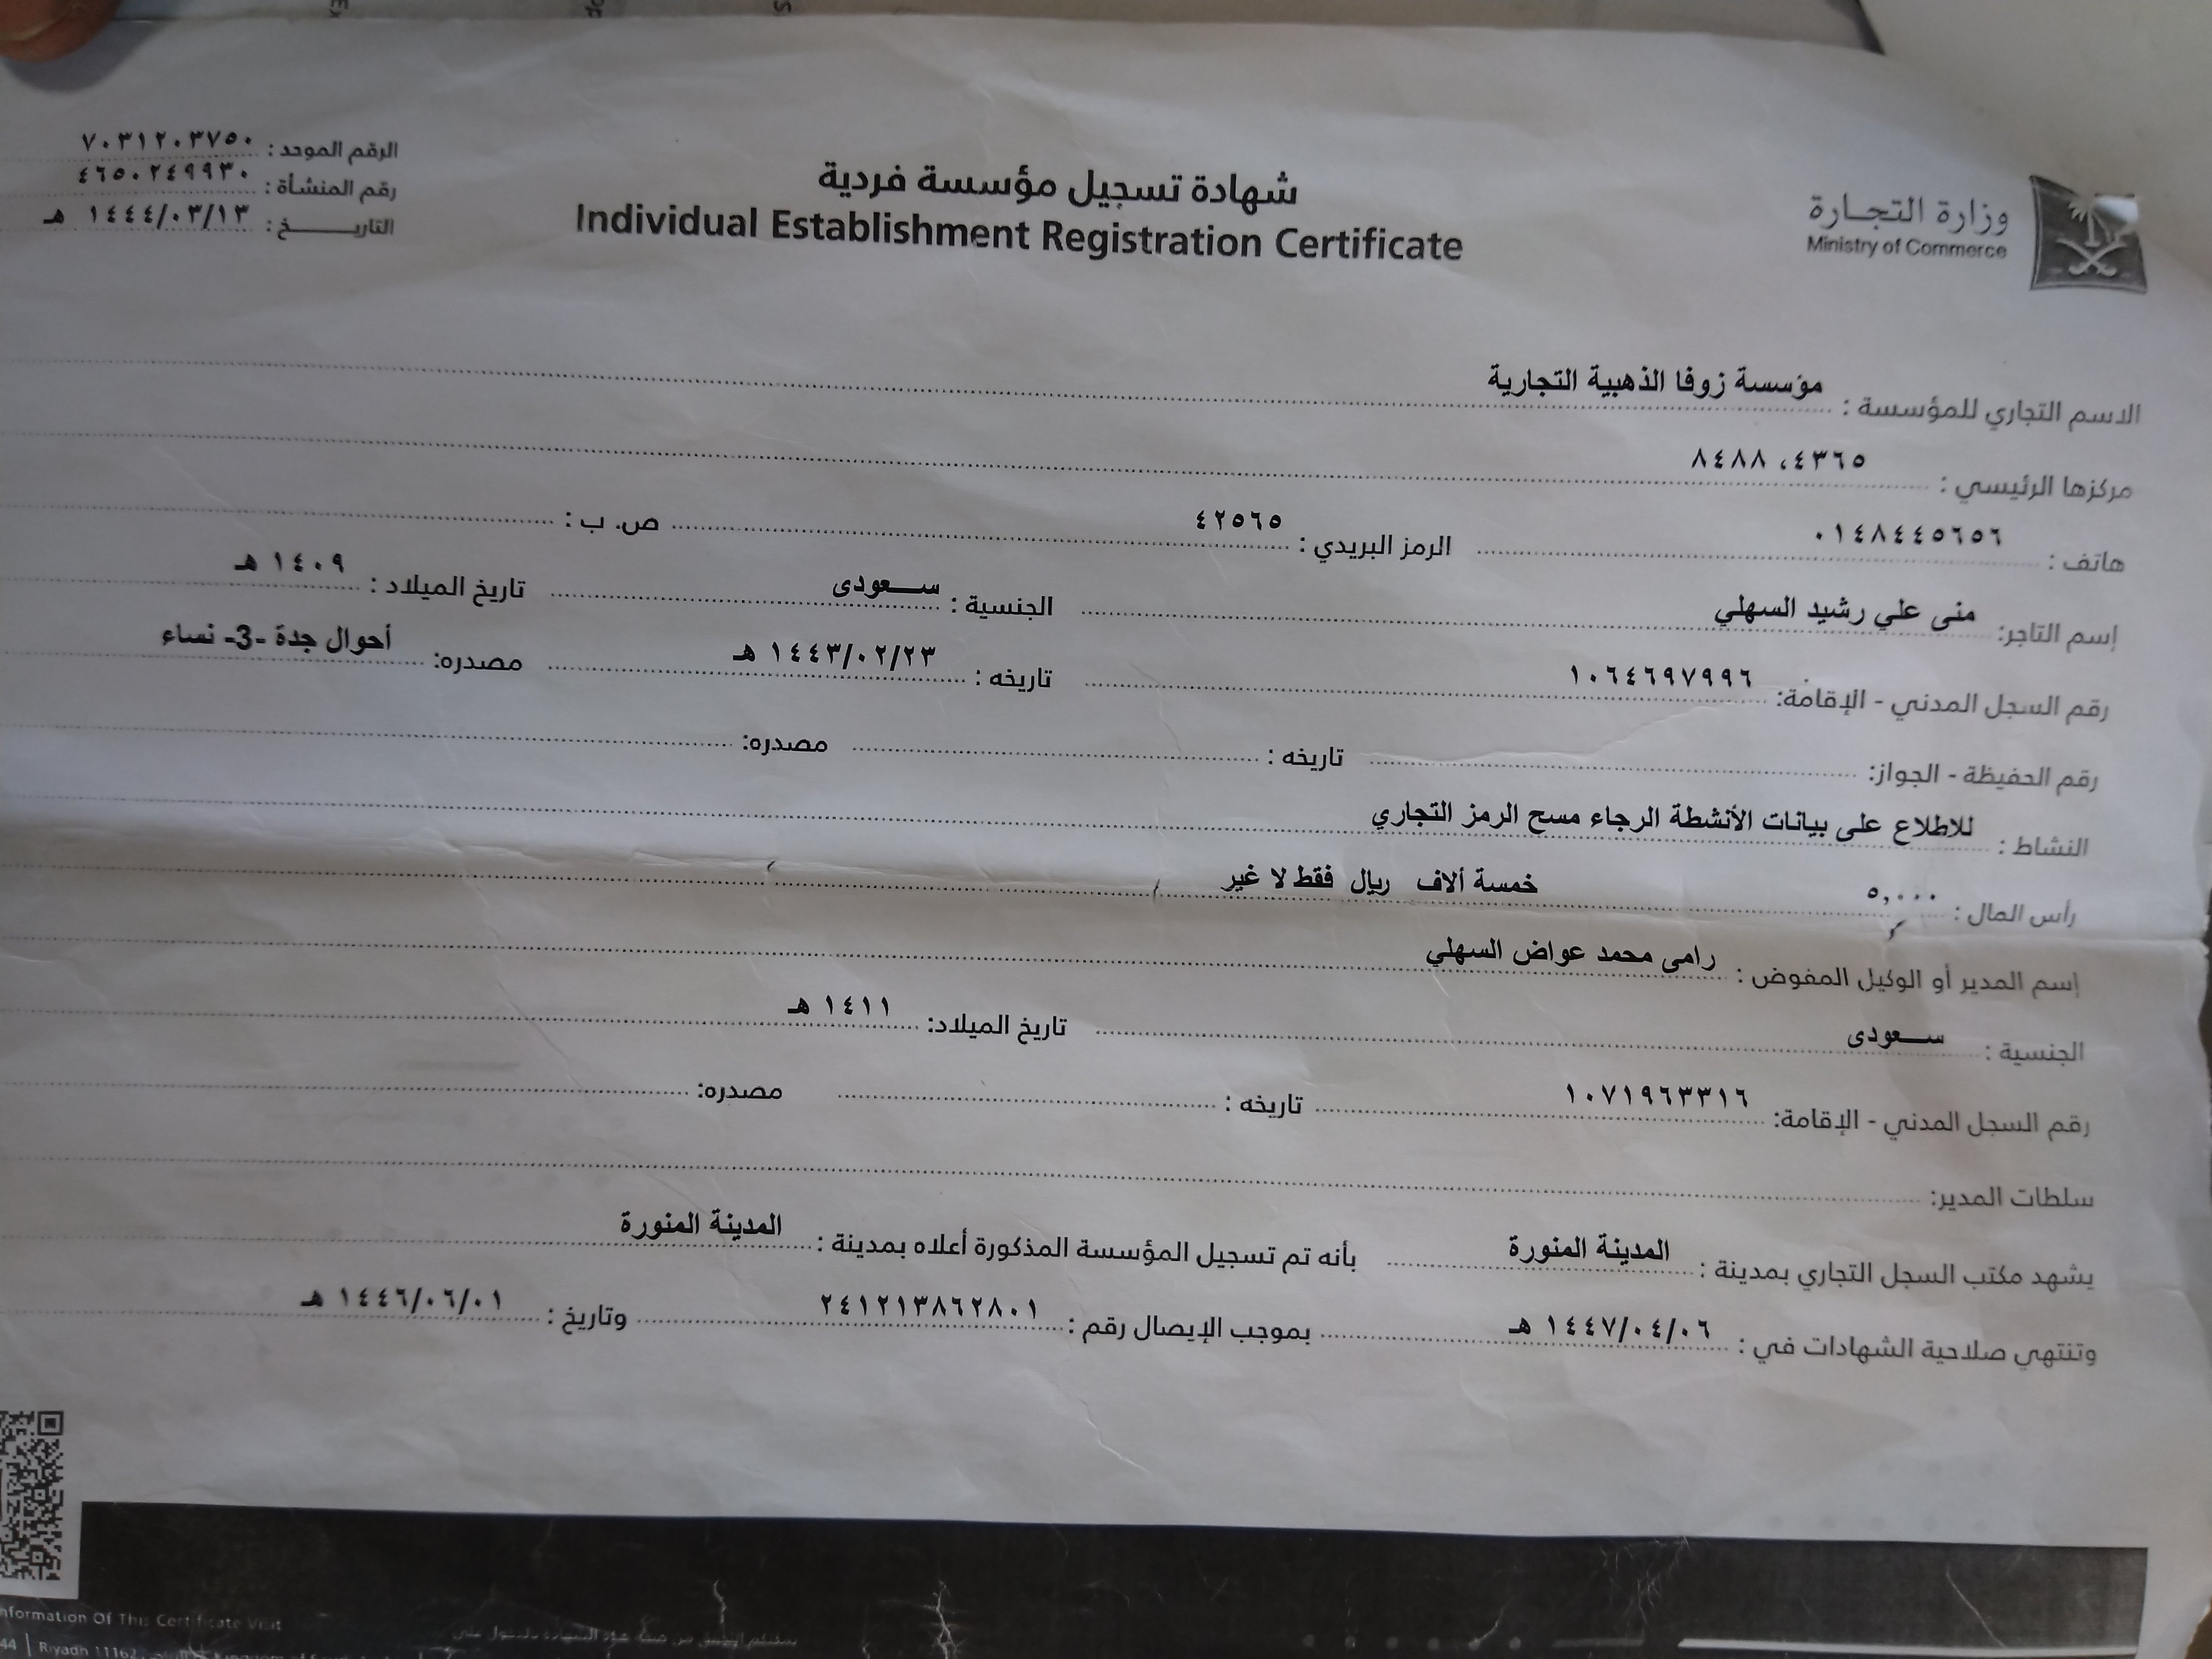 وزارة التجارة
Ministry of Commerce
شهادة تسجيل مؤسسة فردية
Individual Establishment Registration Certificate
الرقم الموحد : ٧٠٣١٢٠٣٧٥٠
رقم المنشأة : ٤٦٥٠٢٤٩٩٣٠
التاريـــــخ : ١٤٤٤/٠٣/١٣ هـ
الاسم التجاري للمؤسسة : مؤسسة زوفا الذهبية التجارية
مركزها الرئيسي : ٤٣٦٥، ٨٤٨٨
هاتف : ٠١٤٨٤٤٥٦٥٦ الرمز البريدي : ٤٢٥٦٥ ص. ب :
إسم التاجر: منى علي رشيد السهلي الجنسية : ســعودى تاريخ الميلاد : ١٤٠٩ هـ
رقم السجل المدني - الإقامة: ١٠٦٤٦٩٧٩٩٦ تاريخه : ١٤٤٣/٠٢/٢٣ هـ مصدره: أحوال جدة -3- نساء
رقم الحفيظة - الجواز: تاريخه : مصدره:
النشاط : للاطلاع على بيانات الأنشطة الرجاء مسح الرمز التجاري
رأس المال : ٥,٠٠٠ خمسة ألاف ريال فقط لا غير
إسم المدير أو الوكيل المفوض : رامى محمد عواض السهلي
الجنسية : ســعودى تاريخ الميلاد: ١٤١١ هـ
رقم السجل المدني - الإقامة: ١٠٧١٩٦٣٣١٦ تاريخه : مصدره:
سلطات المدير:
يشهد مكتب السجل التجاري بمدينة : المدينة المنورة بأنه تم تسجيل المؤسسة المذكورة أعلاه بمدينة : المدينة المنورة
وتنتهي صلاحية الشهادات في : ١٤٤٧/٠٤/٠٦ هـ بموجب الإيصال رقم : ٢٤١٢١٣٨٦٢٨٠١ وتاريخ : ١٤٤٦/٠٦/٠١ هـ
Information Of This Certificate Visit
44 | Riyadh 11162